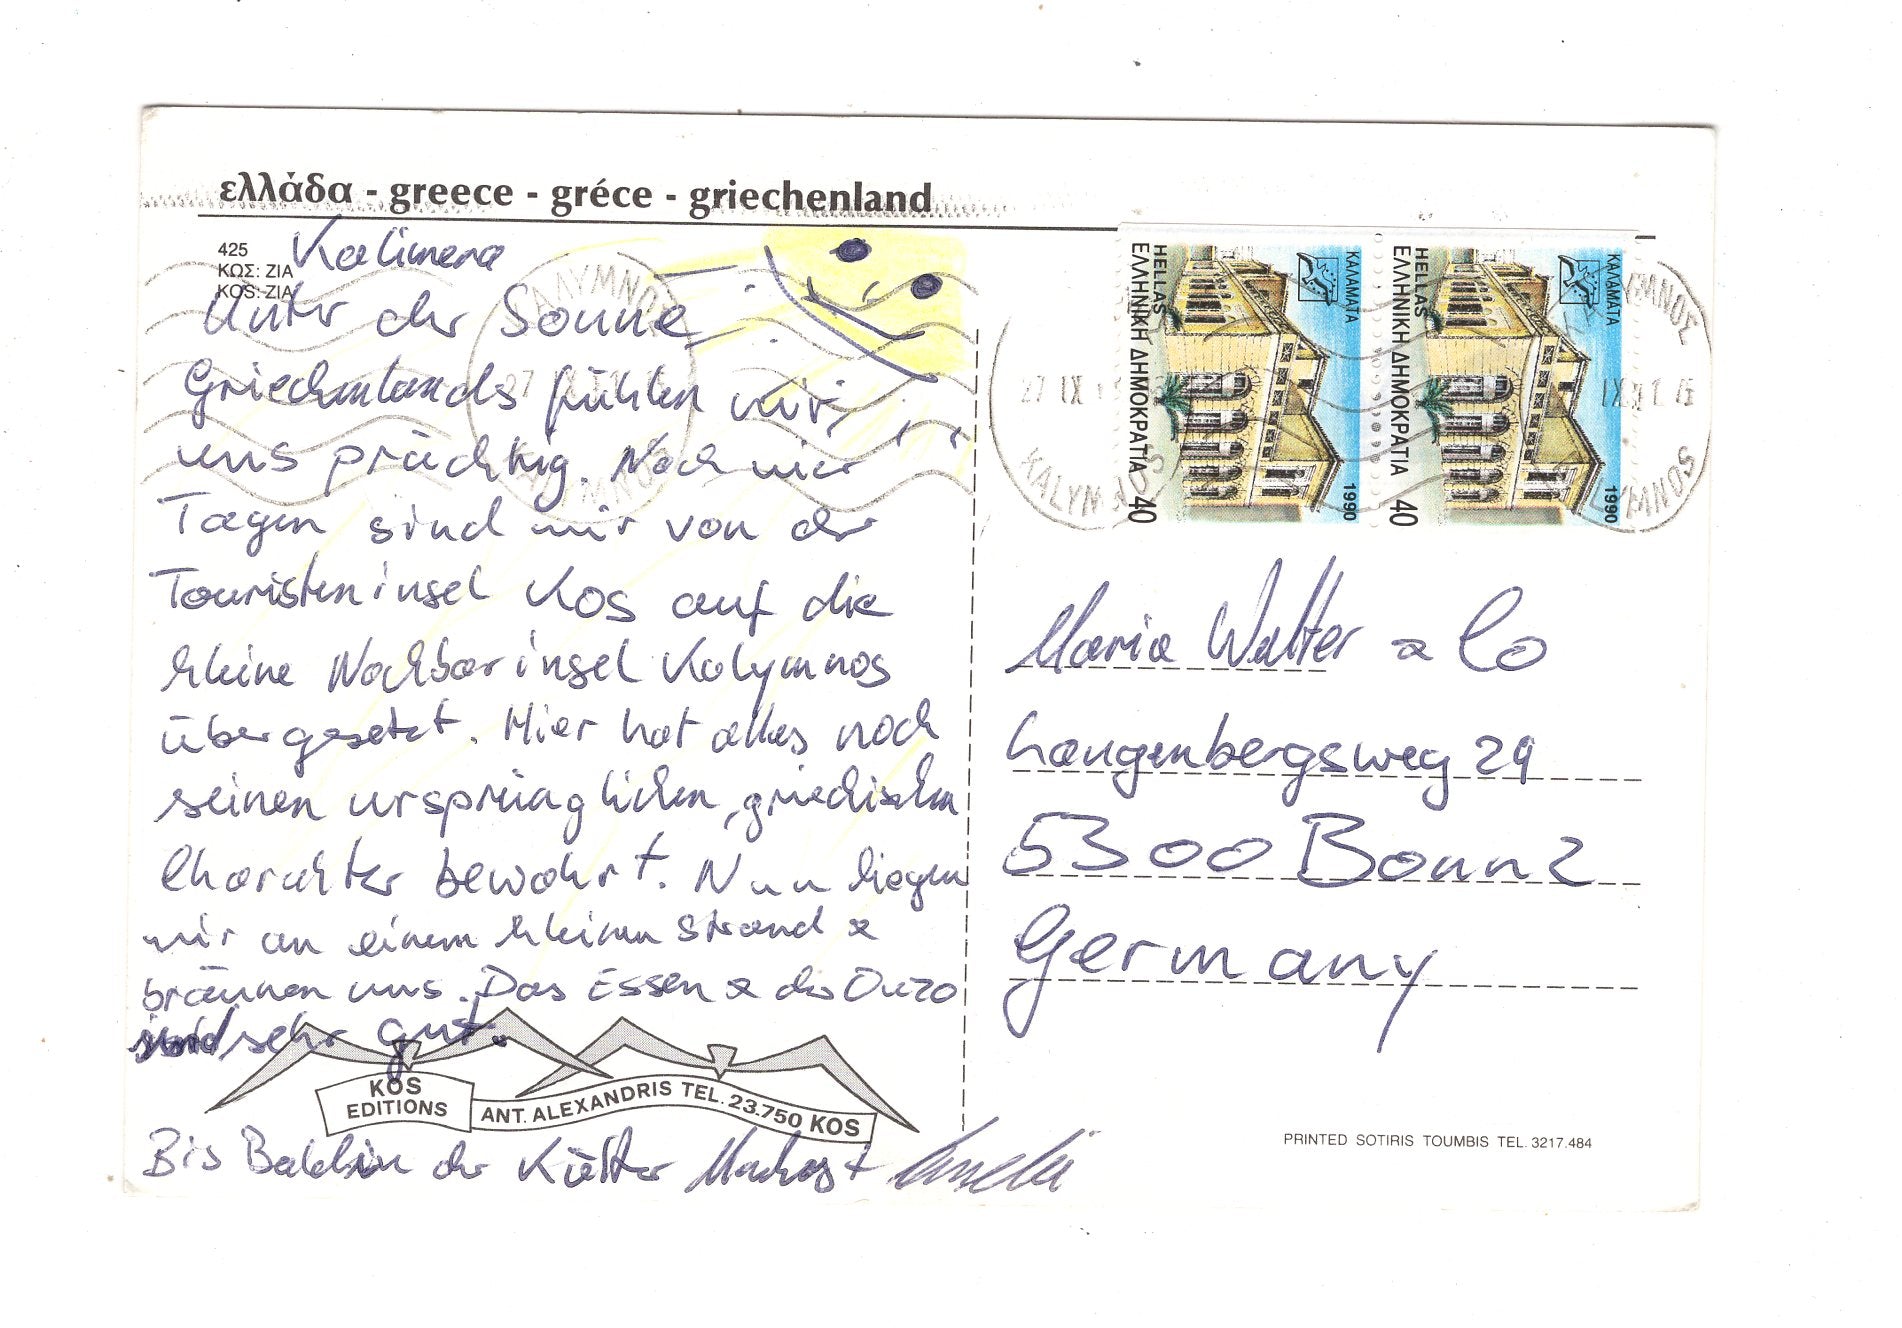 ελλάδα - greece - gréce - griechenland
425
ΚΩΣ: ΖΙΑ
KOS: ZIA
Kalimera
Unter der Sonne
Griechenlands fühlen wir
uns prächtig. Nach vier
Tagen sind wir von der
Touristeninsel Kos auf die
kleine Nachbarinsel Kalymnos
übergesetzt. Hier hat alles noch
seinen ursprünglichen, griechischen
Charakter bewahrt. Nun liegen
wir an einem kleinen Strand &
bräunen uns. Das Essen & der Ouzo
sind sehr gut.
KOS
EDITIONS
ANT. ALEXANDRIS TEL. 23.750 KOS
Bis Bald in der Kälte
HELLAS
ΕΛΛΗΝΙΚΗ ΔΗΜΟΚΡΑΤΙΑ 40
ΚΑΛΑΜΑΤΑ
1990
HELLAS
ΕΛΛΗΝΙΚΗ ΔΗΜΟΚΡΑΤΙΑ 40
ΚΑΛΑΜΑΤΑ
1990
ΚΑΛΥΜΝΟΣ
27 IX
KALYMNOS
Maria Walter & Co
Langenbergsweg 29
5300 Bonn 2
Germany
PRINTED SOTIRIS TOUMBIS TEL. 3217.484